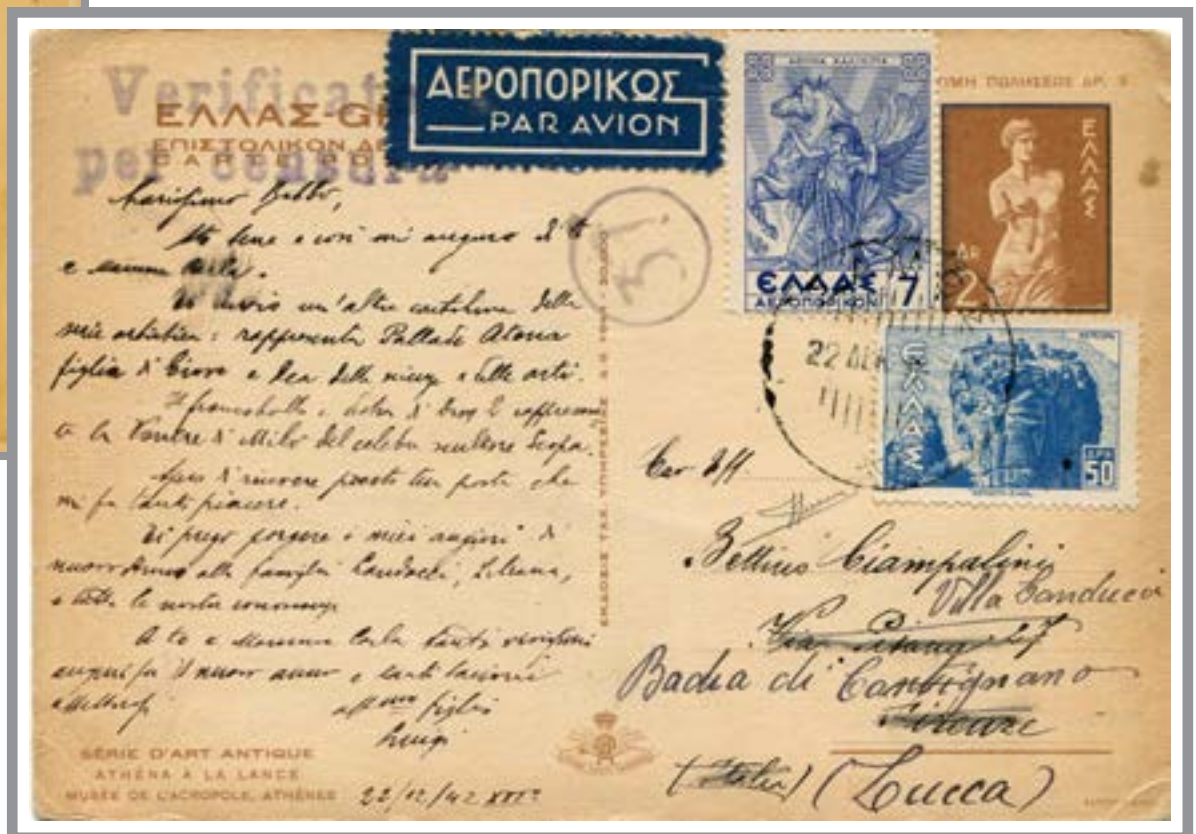 Verificat
per censura
ΕΛΛΑΣ-GR
ΕΠΙΣΤΟΛΙΚΟΝ ΔΕ
CARTE PO
ΑΕΡΟΠΟΡΙΚΩΣ
PAR AVION
ΕΛΛΑΣ 7
ΑΕΡΟΠΟΡΙΚΟΝ
ΠΩΛΗΣΕΩΣ ΔΡ.
ΕΛΛΑΣ
ΔΡ
2
22 ΔΕΚ
ΕΛΛΑΣ
ΔΡΑ
50
Carissimo Babbo,
Sto bene e così mi auguro di te
e mamma Carla.
Ti invio un'altra cartolina della
serie artistica: rappresenta Pallade Atena
figlia di Giove e Dea delle e delle arti.
Il francobollo a destra di Drax 2 rappresen
ta la Venere di Milo del celebre scultore Scopa.
Spero di ricevere presto tua posta che
mi fa tanto piacere.
Ti prego porgere i miei auguri di
nuovo Anno alla famiglia Liliana,
e tutte le nostre conoscenze
A te e Mamma Carla tanti vivissimi
auguri per il nuovo anno e tanti bacioni
aff.mo figlio
Luigi
22/12/42 XXI°
SÉRIE D'ART ANTIQUE
ATHÉNA A LA LANCE
MUSÉE DE L'ACROPOLE, ATHÈNES
Cav. Uff.
Bettino Ciampalini
Villa
27
Badia di Cantignano
Firenze
(Italia) (Lucca)